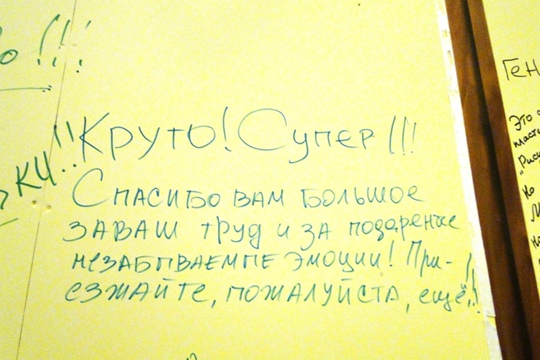 о!!!
ки!!
Круто! Супер!!!
Спасибо вам большое
за ваш труд и за подаренные
незабываемые эмоции! При-
езжайте, пожалуйста, ещё!!
Ген
Это